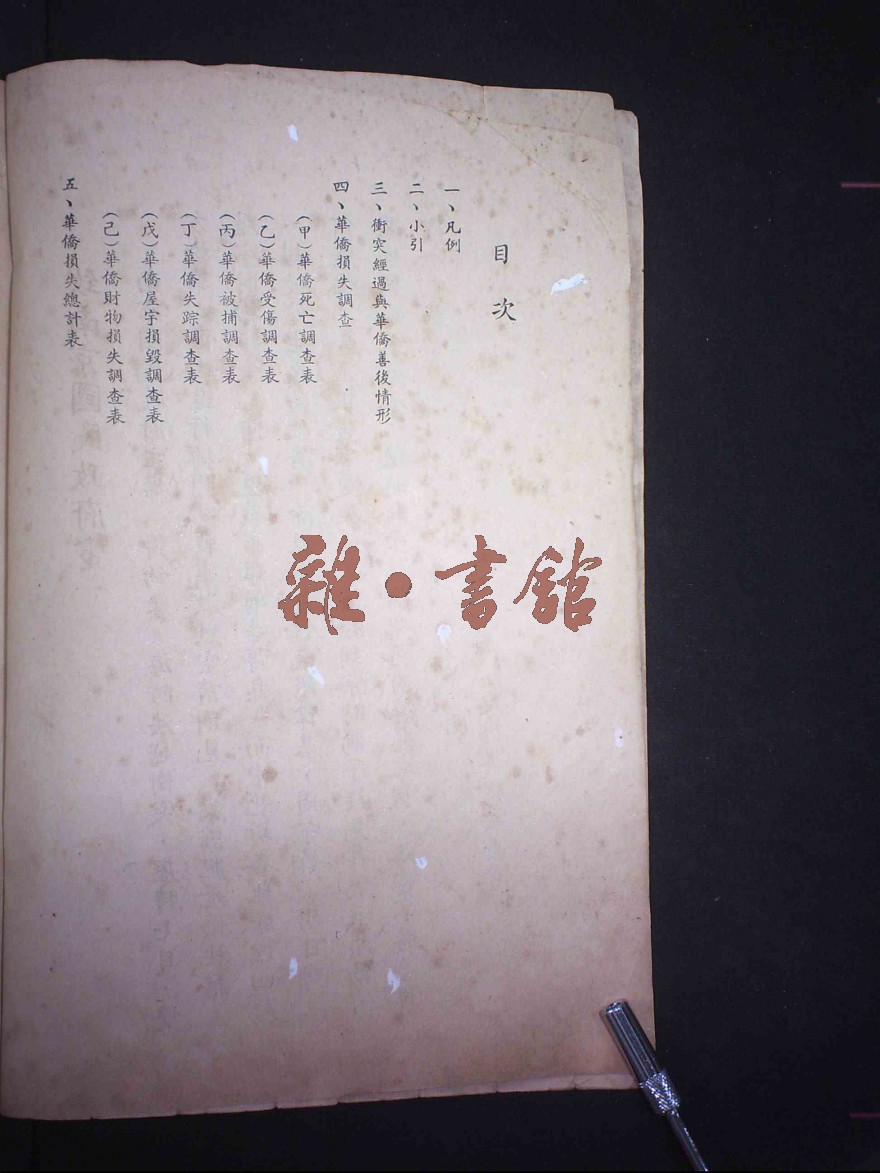 目次
一、凡例
二、小引
三、衝突經過與華僑善後情形
四、華僑損失調查
（甲）華僑死亡調查表
（乙）華僑受傷調查表
（丙）華僑被捕調查表
（丁）華僑失踪調查表
（戊）華僑屋宇損毀調查表
（己）華僑財物損失調查表
五、華僑損失總計表
雜·書館